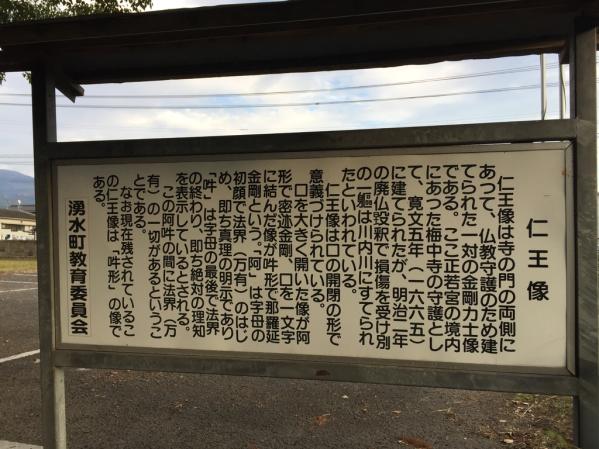 仁王像
仁王像は寺の門の両側に
あって、仏教守護のため建
てられた一対の金剛力士像
である。ここ正若宮の境内
にあった梅中寺の守護とし
て、寛文五年（一六六五）
に建てられたが、明治二年
の廃仏毀釈で損傷を受け別
の一躯は川内川にすてられ
たといわれている。
仁王像は口の開閉の形で
意義づけられている。
口を大きく開いた像が阿
形で密迹金剛、口を一文字
に結んだ像が吽形で那羅延
金剛という。「阿」は字母の
初韻で法界（万有）のはじ
め、即ち真理の明示であり
「吽」は字母の最後で法界
の終わり、即ち絶対の理知
を表示しているとされる。
この阿吽の間に法界（万
有）の一切があるというこ
とである。
なお現在残されているこ
の仁王像は「吽形」の像で
ある。
湧水町教育委員会